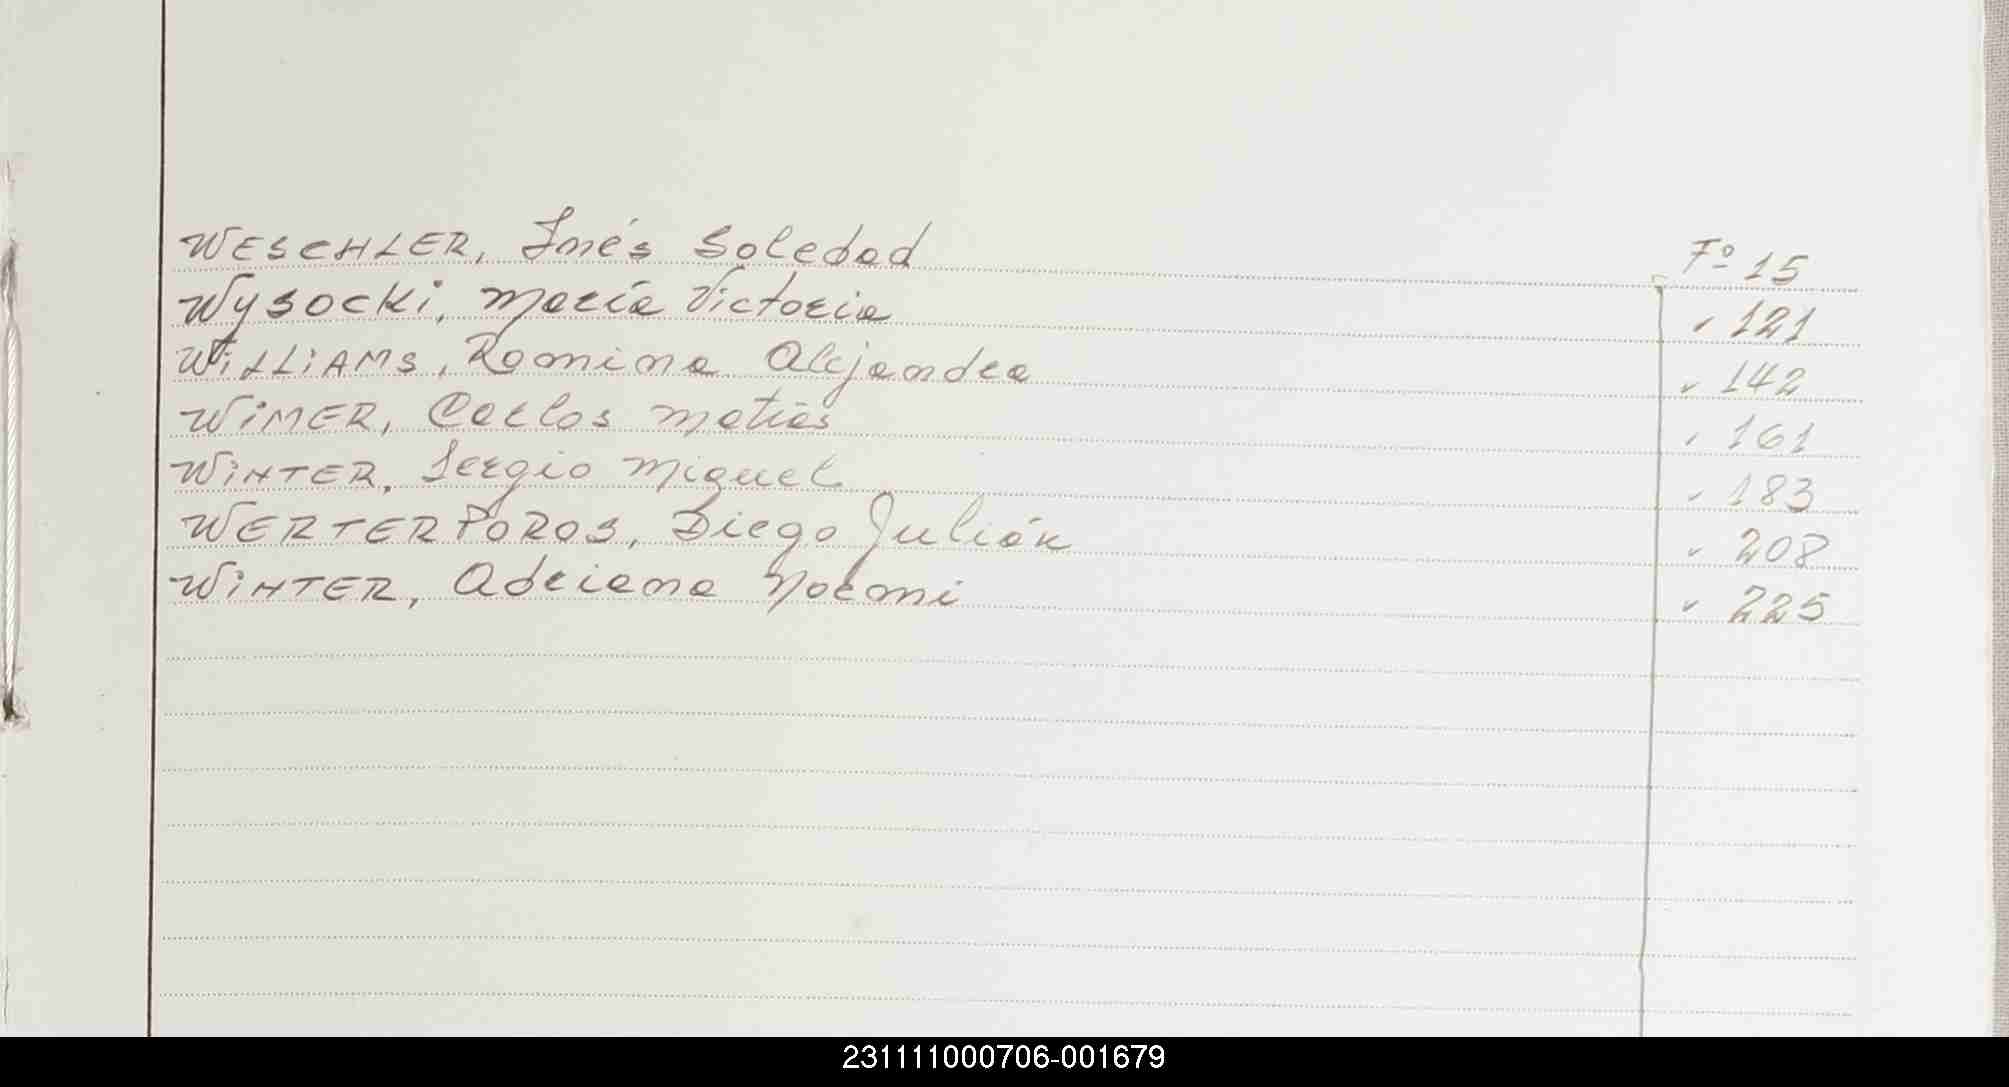 WESCHLER, Inés Soledad Fº 15
WYSOCKi, María Victoria " 121
WiLLiAMS, Romina Alejandra " 142
WiMER, Carlos Matías " 161
WiNTER, Sergio Miguel " 183
WERTERPOROS, Diego Julián " 208
WiNTER, Adriana Noemi " 225
231111000706-001679